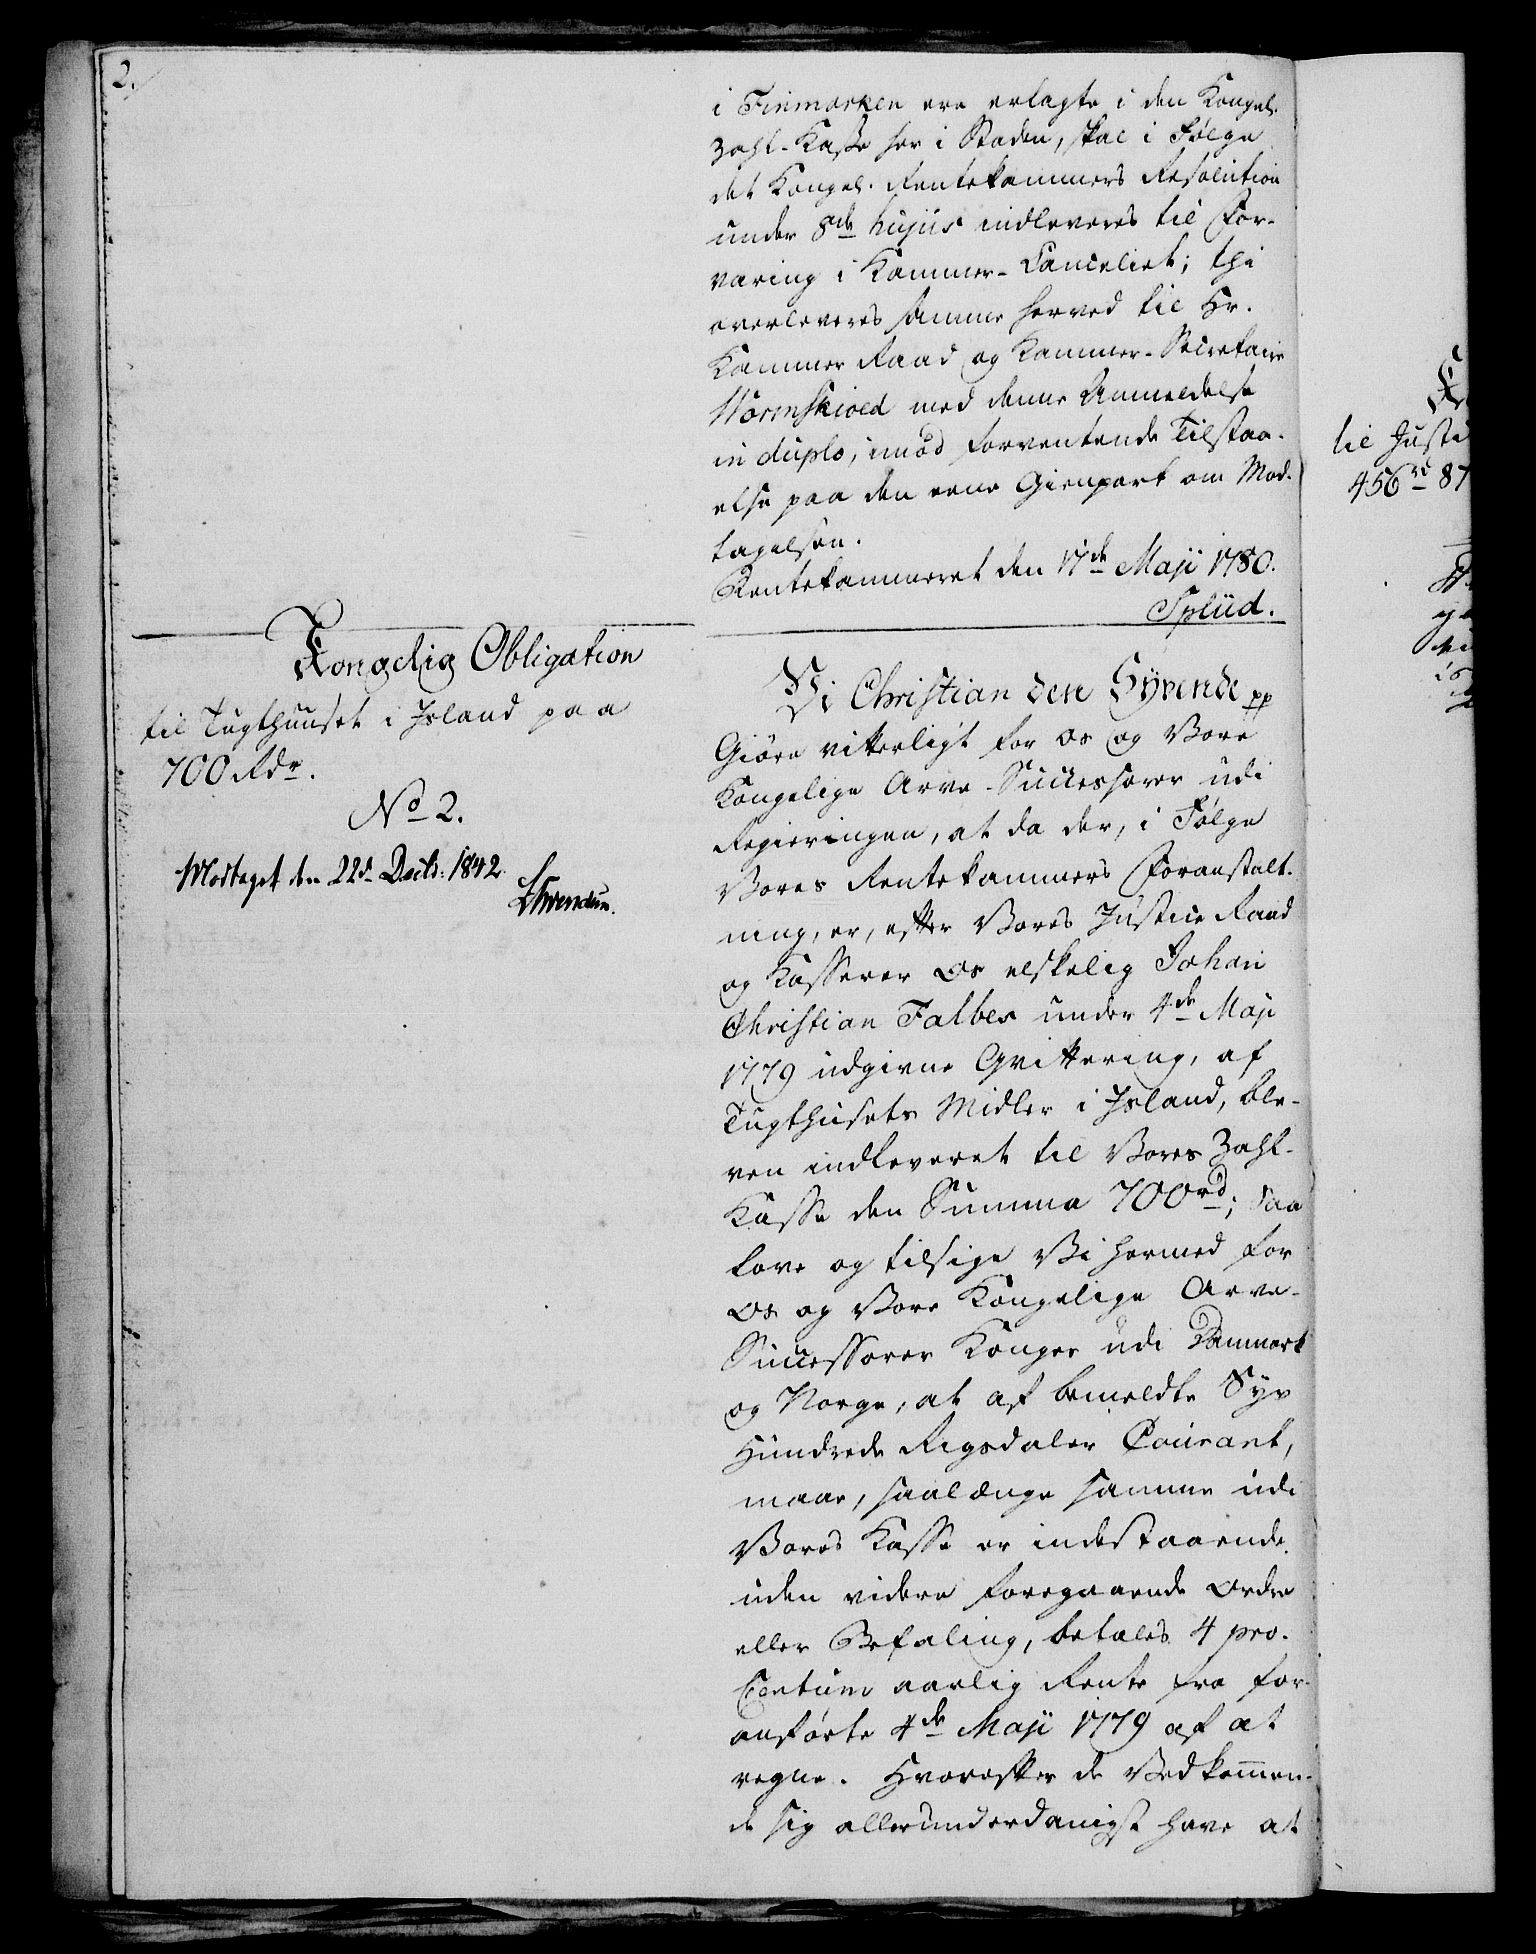 2.
i Finmarken ere erlagte i den Kongel.
Zahl-Kasse her i Staden, skal i Følge
det Kongel. Rentekammers Resolution
under 8de hujus indleveres til For-
varing i Kammer-Cancelliet; thi
overleveres samme herved til Hr.
Kammer Raad og Kammer-Secretaire
Wormskiold med denne Anmeldelse
in duplo, imod forventende Tilstaa-
else paa den eene Gienpart om Mod-
tagelsen.
Rentekammeret den 17de Maji 1780.
Splüd.
Kongelig Obligation
til Tugthuuset i Island paa
700 Rdr.
No 2.
Modtaget den 22d. Decbr. 1842.
Vi Christian den Syvende pp
Giøre vitterligt for os og Vore
Kongelige Arve-Successorer udi
Regieringen, at da der, i Følge
Vores Rentekammers Foranstalt-
ning, er, efter Vores Justice Raad
og Kasserer Os elskelig Johan
Christian Falbes under 4de Maji
1779 udgivne Qvittering, af
Tugthusets Midler i Island, ble-
ven indleveret til Vores Zahl-
Kasse den Summa 700 rd; saa
love og tilsige Vi hermed for
Os og Vore Kongelige Arve-
Successorer Konger udi Danmark
og Norge, at af bemeldte Syv
Hundrede Rigsdaler Courant,
maae, saalænge samme udi
Vores Kasse er indestaaende,
uden videre foregaaende Ordre
eller Befaling, betales 4 pro-
Centum aarlig Rente fra for-
anførte 4de Maji 1779 af at
regne. Hvorefter de Vedkommen-
de sig allerunderdanigst have at
til Justi
456 rd 87